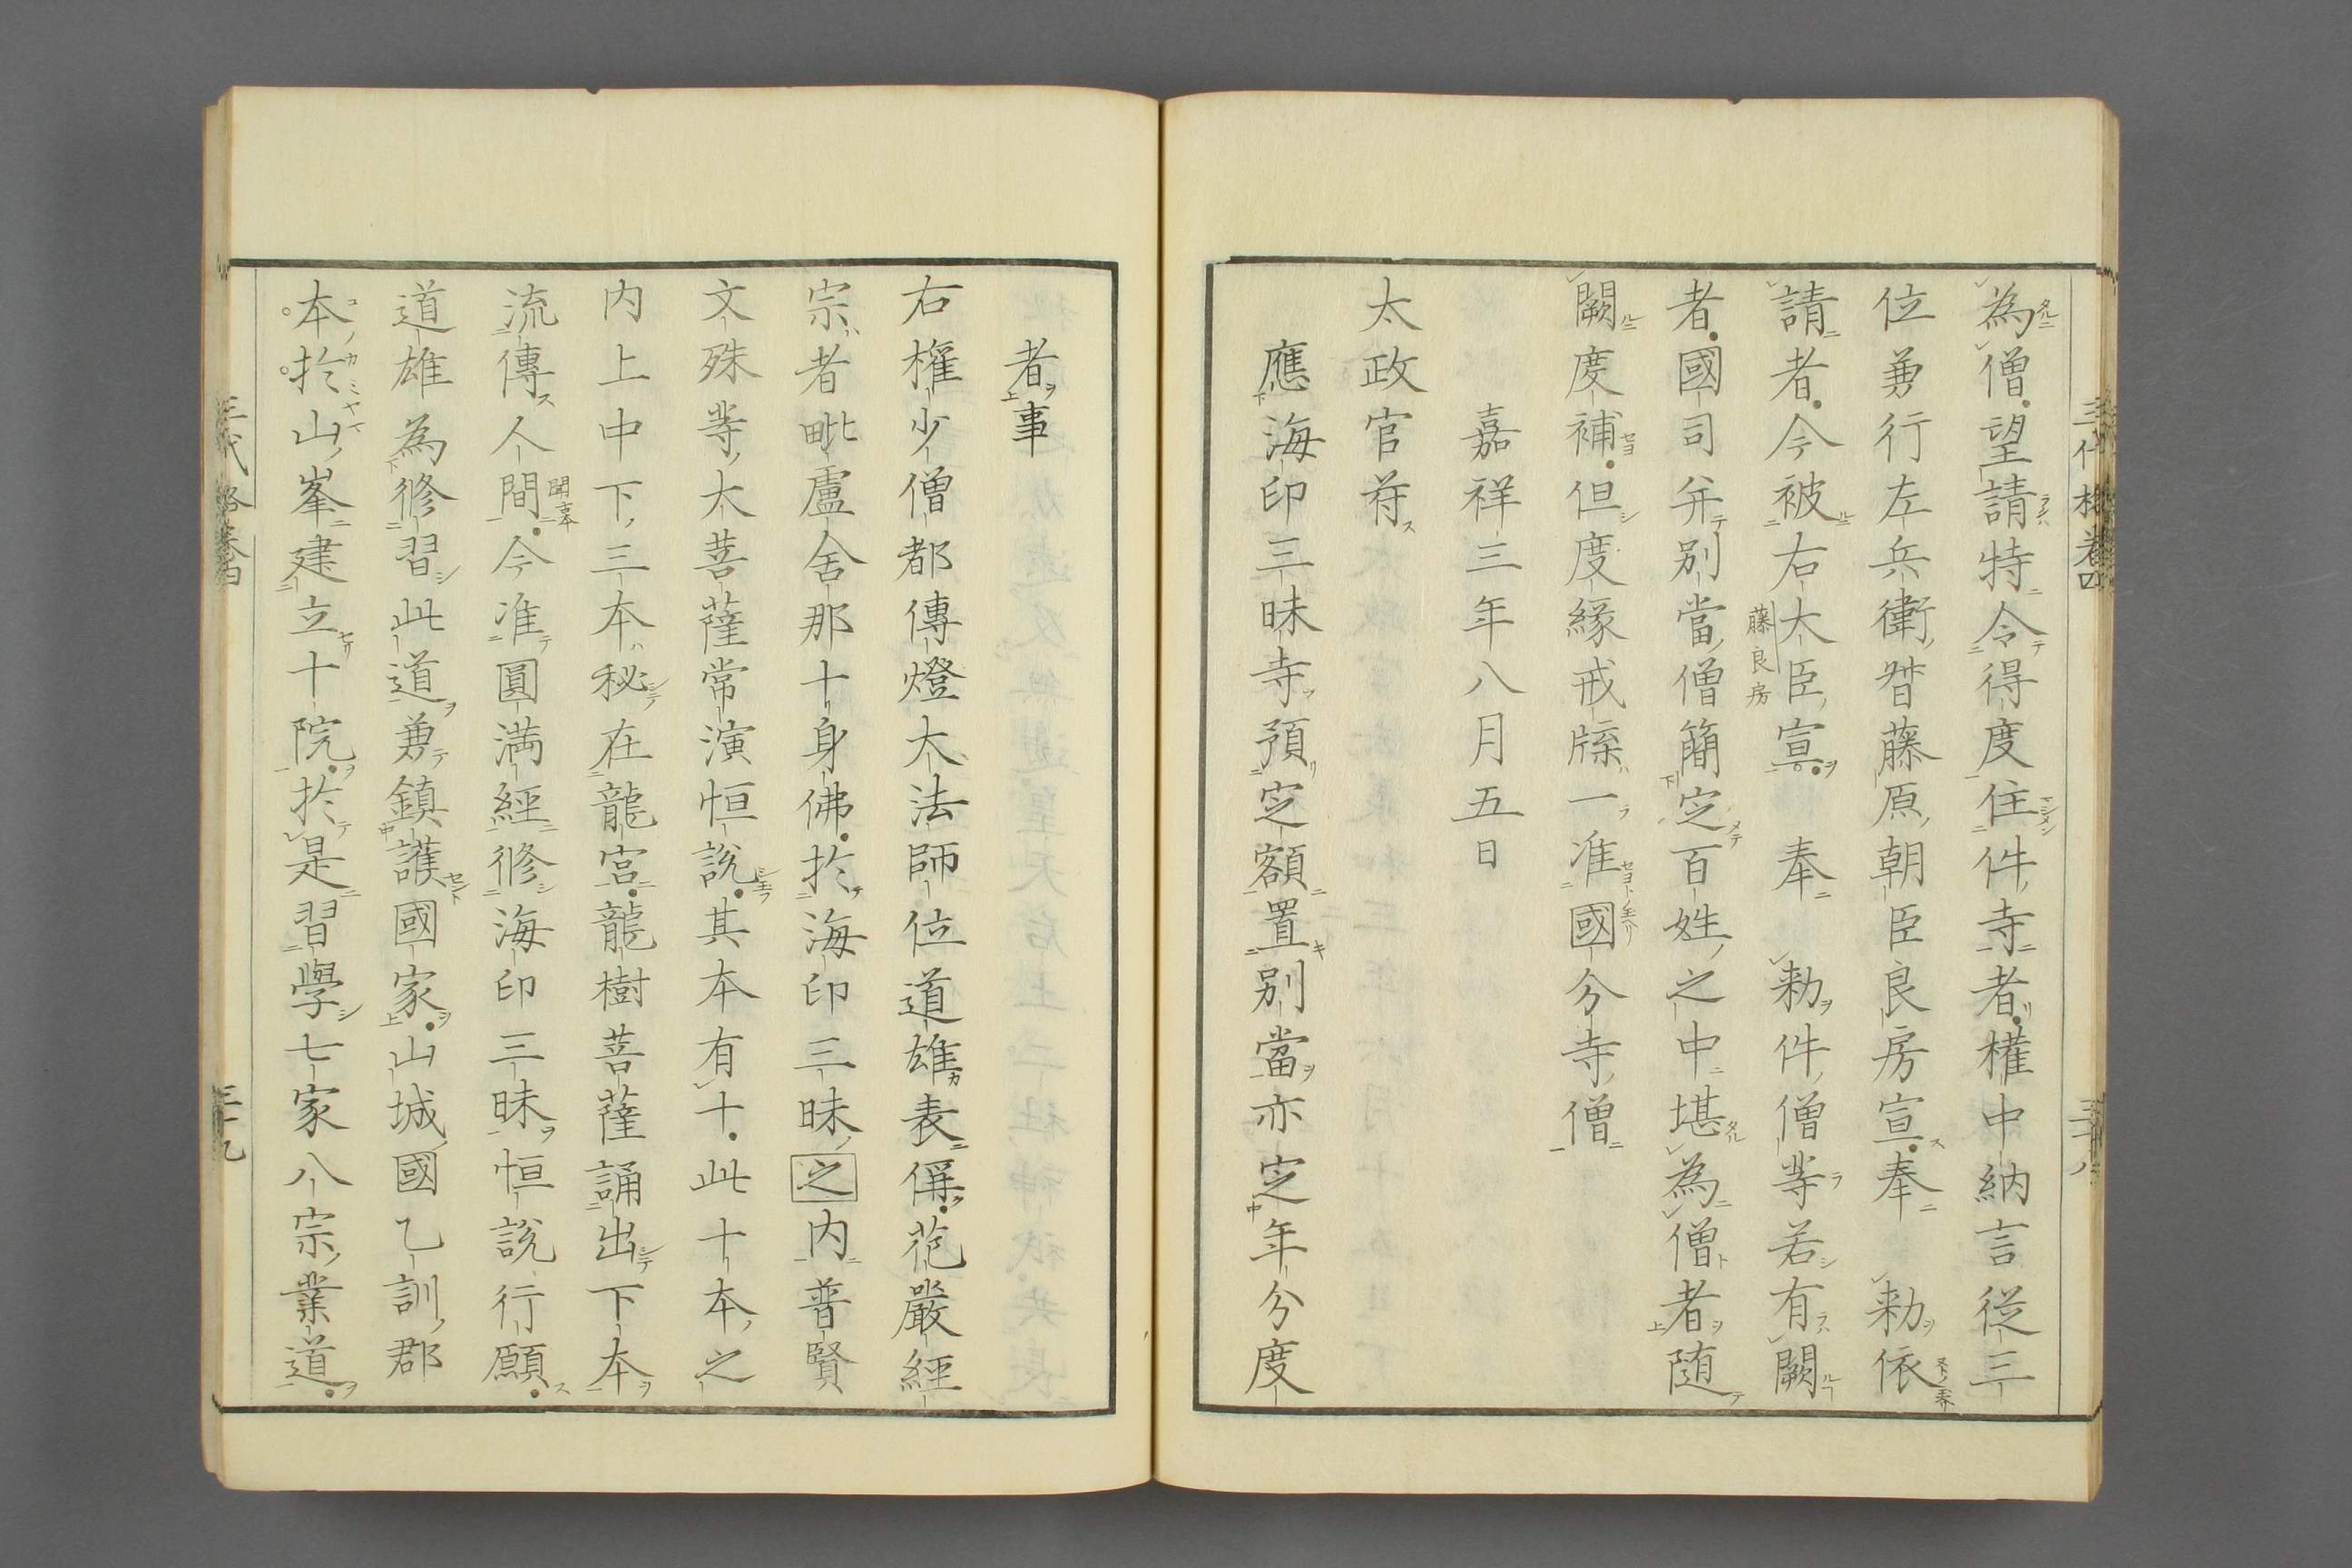 為僧望請特令得度住件寺者權中納言從三
位兼行左兵衛督藤原朝臣良房宣奉　勅依
請者今被右大臣宣　奉　勅件僧等若有闕
藤良房
者國司并別當僧簡定百姓之中堪為僧者随
闕度補但度縁戒牒一准國分寺僧
嘉祥三年八月五日
太政官符
應海印三昧寺預定額置別當亦定年分度
者事
右權少僧都傳燈大法師位道雄表偁花嚴經
宗者毗盧舍那十身佛於海印三昧之内普賢
文殊等大菩薩常演恒說其本有十此十本之
内上中下三本秘在龍宮龍樹菩薩誦出下本
流傳人間今准圓滿經修海印三昧恒說行願
道雄為修習此道兼鎮護國家山城國乙訓郡
本於山峯建立十院於是習學七家八宗業道